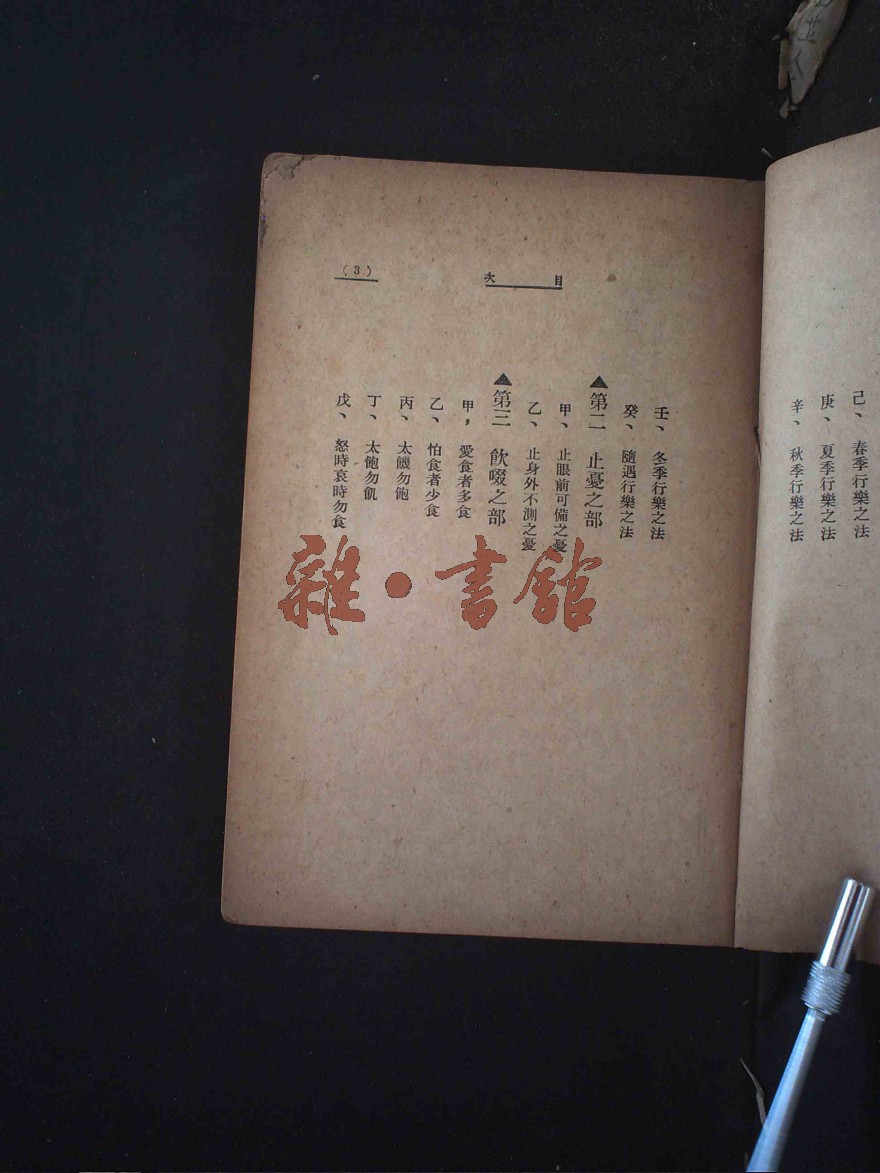 己、春季行樂之法
庚、夏季行樂之法
辛、秋季行樂之法
目次
(3)
壬、冬季行樂之法
癸、隨遇行樂之法
▲第二 止憂之部
甲、止眼前可備之憂
乙、止身外不測之憂
▲第三 飲啜之部
甲，愛食者多食
乙、怕食者少食
丙、太饑勿飽
丁、太飽勿飢
戊、怒時哀時勿食
雜·書館